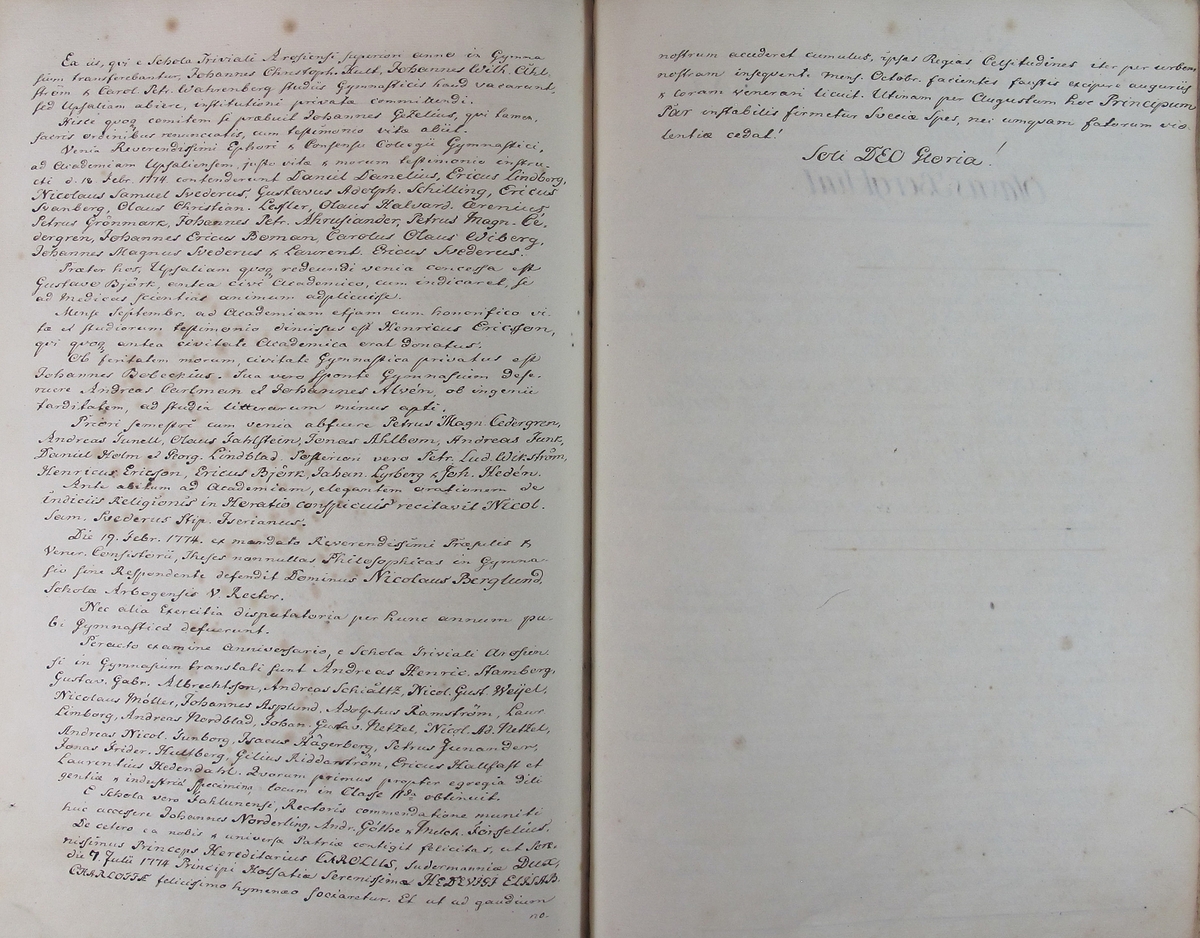 Ex iis, qui e Schola Triviali Arosiensi superiori anno in Gymna
sium transferebantur, Johannes Christoph. Hult, Johannes Wilh. Ahl
ström & Carol. Petr. Wahrenberg studiis Gymnasticis haud vacarunt,
sed Upsaliam abiere, institutioni privatæ committendi.
Hisce quoq comitem se præbuit Johannes Gezelius, qui tamen,
sacris ordinibus renunciatis, cum testimonio vitæ abiit.
Venia Reverendissimi Ephori & Consensu Collegii Gymnastici,
ad Academiam Upsaliensem, justo vitæ & morum testimonio instru-
cti d. 18 Febr. 1774 contenderunt Daniel Danelius, Ericus Lindberg,
Nicolaus Samuel Svederus, Gustavus Adolph. Schilling, Ericus
Svanberg, Olaus Christian. Leffler, Olaus Halvard. Cerenius,
Petrus Grönmark, Johannes Petr. Ahrusiander, Petrus Magn. Ce-
dergren, Johannes Ericus Boman, Carolus Olaus Wiberg,
Johannes Magnus Svederus & Laurent. Ericus Svederus.
Præter hos, Upsaliam quoq redeundi venia concessa est
Gustavo Björk, antea civi Academico, cum indicaret, se
ad Medicas scientias animum adplicuisse.
Mense Septembr. ad Academiam etjam cum honorifico vi-
tæ et studiorum testimonio dimissus est Henricus Ericsson,
qui quoq antea civitate Academica erat donatus.
Ob feritatem morum, civitate Gymnastica privatus est
Johannes Boleckius. Sua vero sponte Gymnasium dese-
ruere Andreas Carlman et Johannes Alvén, ob ingenii
tarditatem, ad studia litterarum minus apti.
Priori semestri cum venia abfuere Petrus Magn. Cedergren,
Andreas Sunell, Olaus Fahlstein, Jonas Ahlbom, Andreas Funk,
Daniel Holm et Georg. Lindblad. Posteriori vero Petr. Lud. Wikström,
Henricus Ericson, Ericus Björk, Johan. Lyrberg & Joh. Hedén.
Ante abitum ad Academiam, elegantem orationem de
indiciis Religionis in Horatio conspicuis recitavit Nicol.
Sam. Svederus Stip. Iserianus.
Die 19. Febr. 1774. ex mandato Reverendissimi Præsulis &
Vener. Consistorii, Theses nonnullas Philosophicas in Gymna-
sio sine Respondente defendit Dominus Nicolaus Berglund,
Scholæ Arbogensis V. Rector.
Nec alia Exercitia disputatoria per hunc annum pu-
bi Gymnasticæ defuerunt.
Peracto examine Anniversario, e Schola Triviali Arosien
si in Gymnasium translati sunt Andreas Henric. Stamberg,
Gustav. Gabr. Albrechtsson, Andreas Schiältz, Nicol. Gust. Weijel,
Nicolaus Möller, Johannes Asplund, Adolphus Ramström, Laur.
Limborg, Andreas Nordblad, Johan. Gustav. Netzel, Nicol. Ad. Netzel,
Andreas Nicol. Gunborg, Isacus Hagerberg, Petrus Junander,
Jonas Frider. Hultberg, Gilius Riddarström, Ericus Hallfast et
Laurentius Hedendahl. Quorum primus propter egregia dili
gentiæ & industriæ specimina locum in Classe IIda obtinuit.
E Schola vero Fahlunensi, Rectoris commendatione muniti
huc accessere Johannes Norderling, Andr. Göthe & Melch. Forselius.
De cetero ea nobis & universæ Patriæ contigit felicitas, ut Sere-
nissimus Princeps Hereditarius CAROLUS, Sudermanniæ Dux,
die 7 Julii 1774 Principi Holsatiæ Serenissimæ HEDEVIGI ELISAB.
CHARLOTTÆ felicissimo hymenæo sociaretur. Et ut ad gaudium
no.
nostrum accederet cumulus, ipsas Regias Celsitudines iter per urbem
nostram insequent. mens. Octobr. facientes faustis excipere auguriis
& coram venerari licuit. Utinam per Augustum hoc Principum
Par instabilis firmetur Sveciæ Spes, nec umquam fatorum vio
lentiæ cedat!
Soli DEO Gloria!